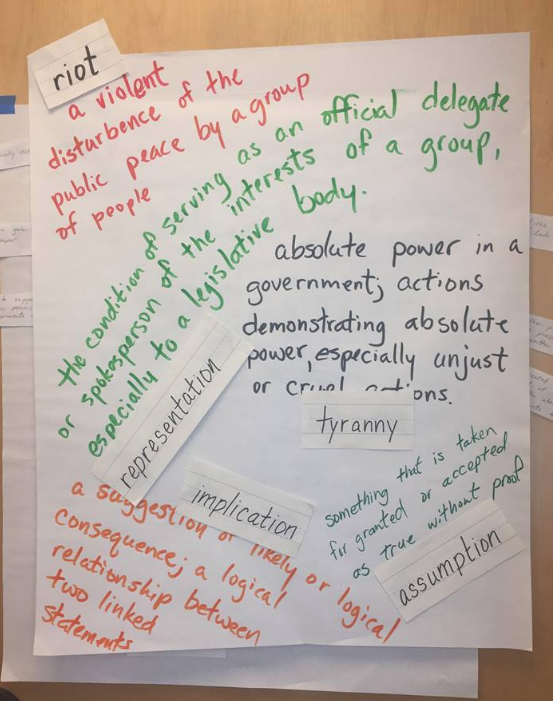 riot
a violent
disturbence of the
public peace by a group
of people
the condition of serving as an official delegate
or spokesperson of the interests of a group,
especially to a legislative body.
representation
absolute power in a
government; actions
demonstrating absolute
power, especially unjust
or cruel actions.
tyranny
implication
a suggestion of likely or logical
consequence; a logical
relationship between
two linked
statements
something that is taken
for granted or accepted
as true without proof
assumption